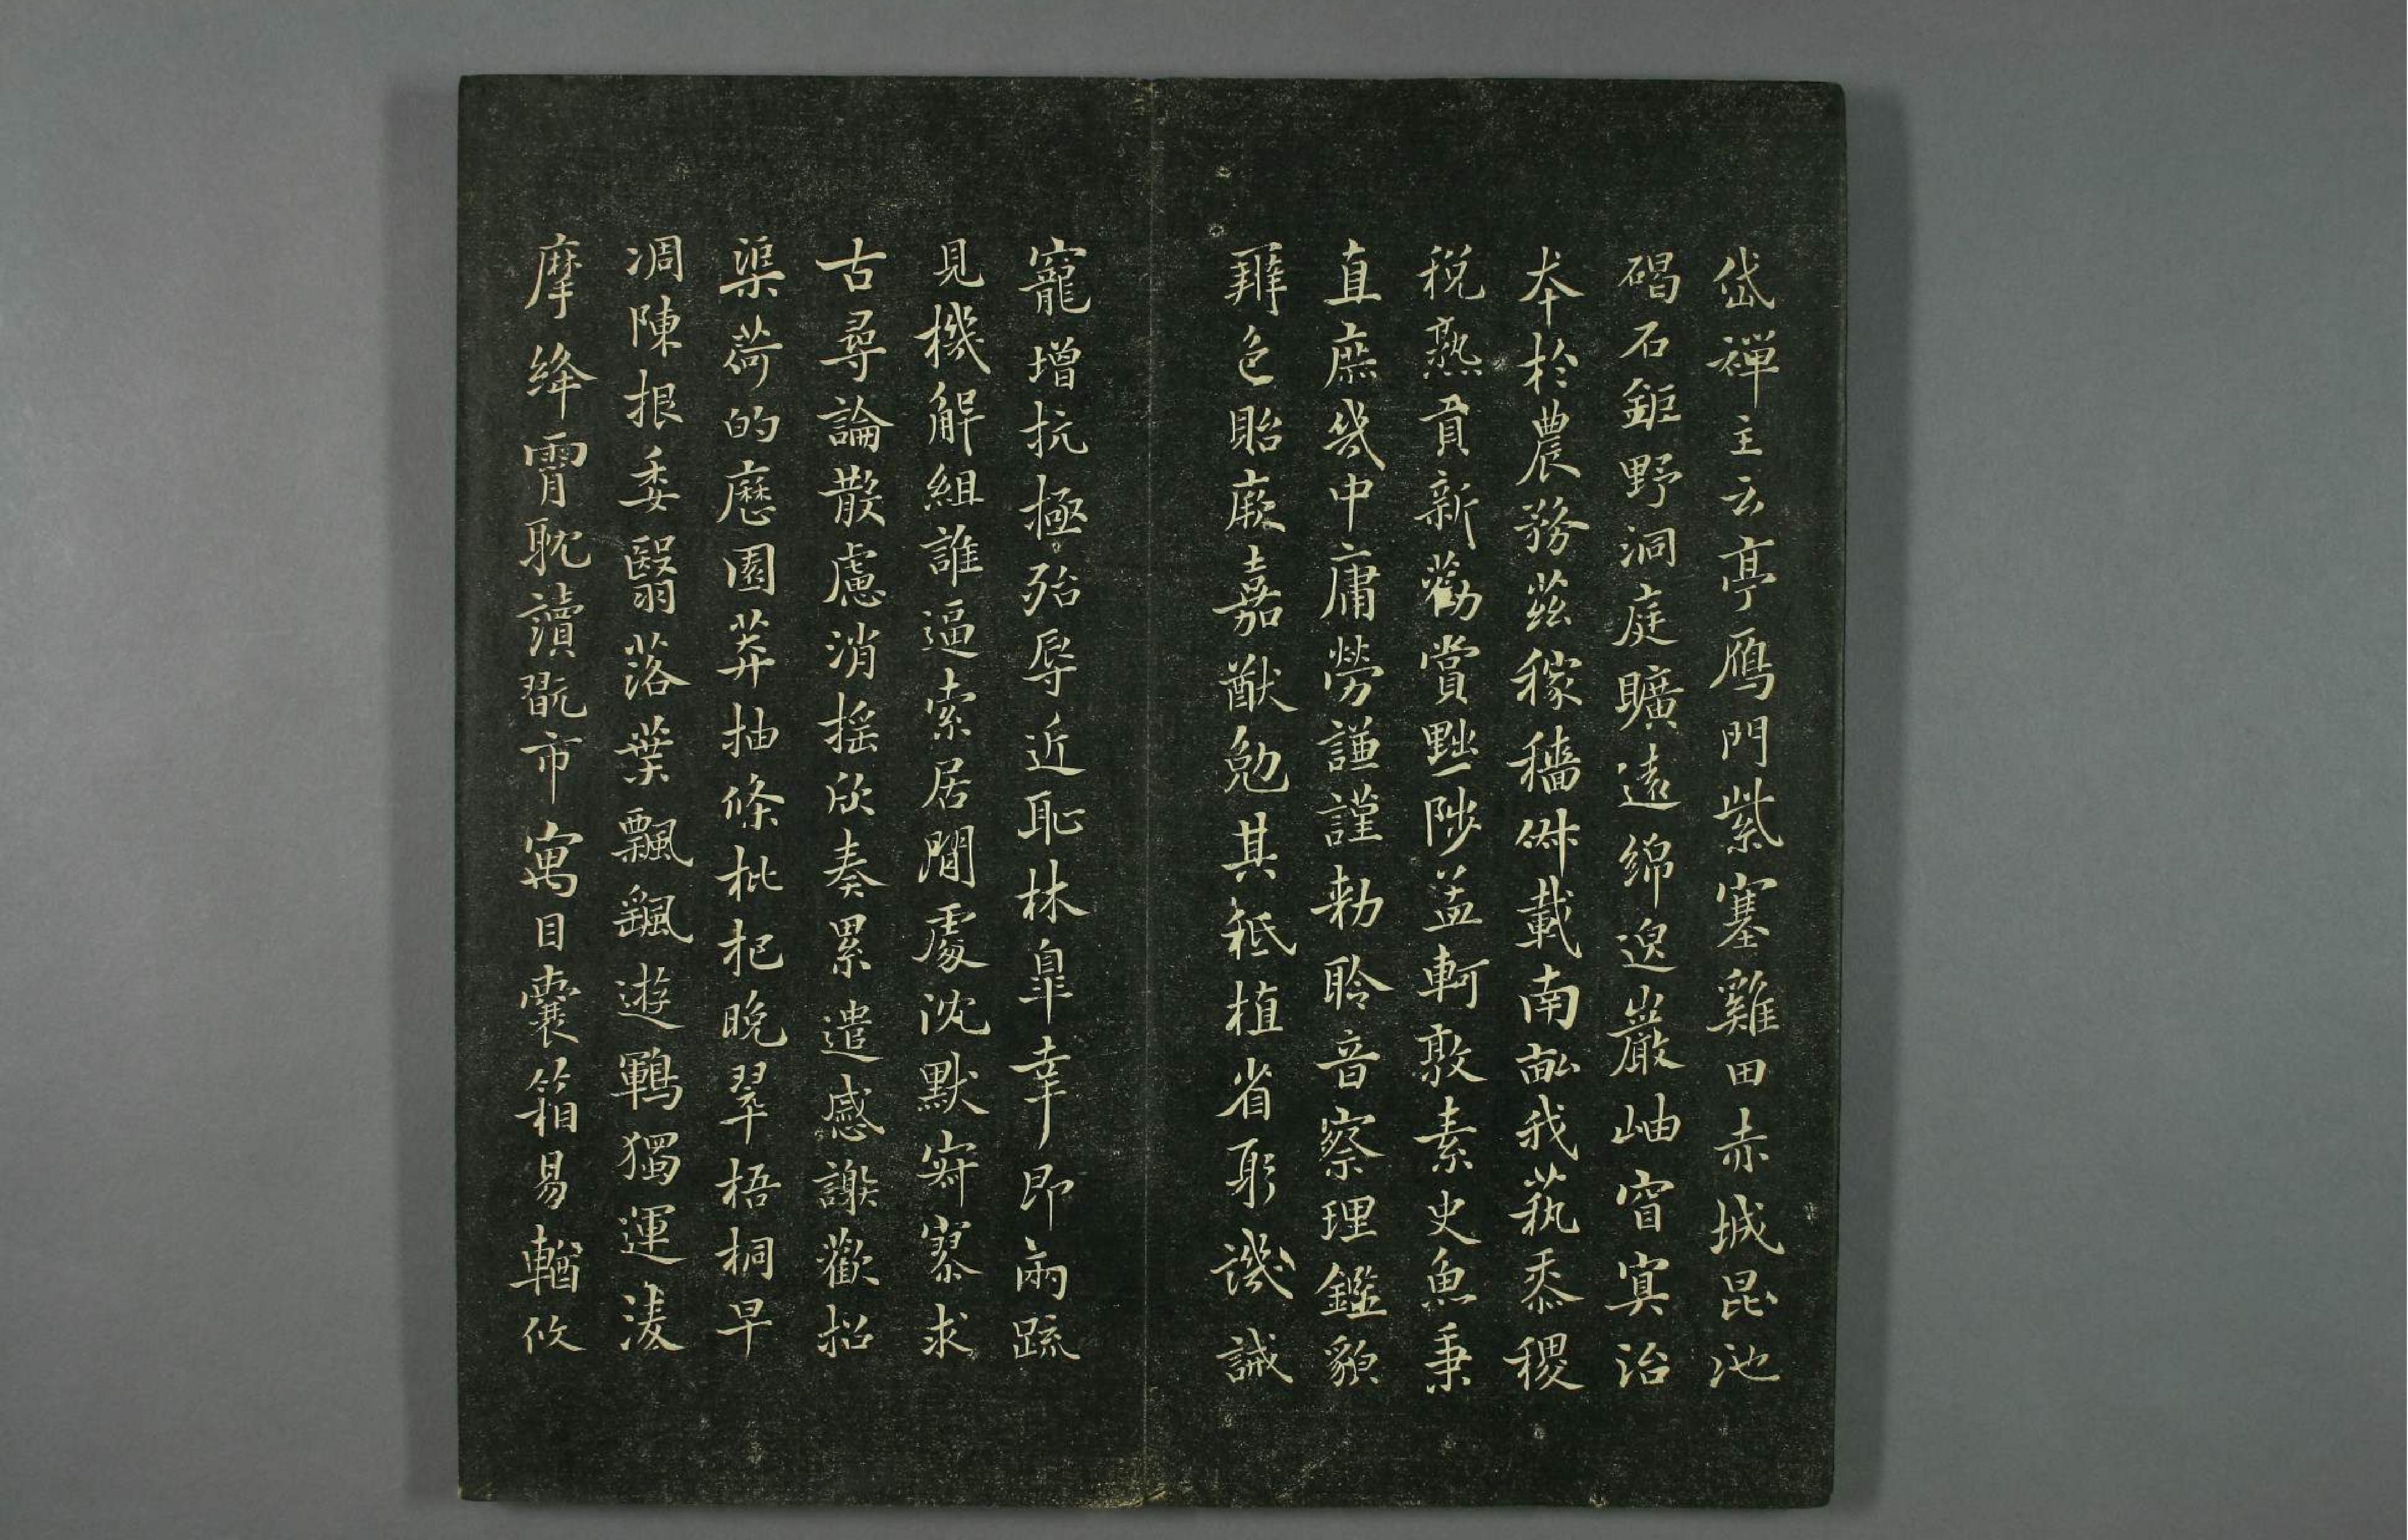 岱禪主云亭鴈門紫塞雞田赤城昆池
碣石鉅野洞庭曠遠綿邈巖岫窅冥治
本於農務茲稼穡俶載南畝我蓺黍稷
稅熟貢新勸賞黜陟孟軻敦素史魚秉
直庶幾中庸勞謙謹勅聆音察理鑑貌
辨色貽厥嘉猷勉其祗植省躬譏誡
寵增抗極殆辱近恥林皐幸即兩疏
見機解組誰逼索居閒處沈默寂寥求
古尋論散慮消搖欣奏累遣慼謝歡招
渠荷的歷園莽抽條枇杷晚翠梧桐早
凋陳根委翳落葉飄颻遊鵾獨運淩
摩絳霄耽讀翫市寓目囊箱易輶攸